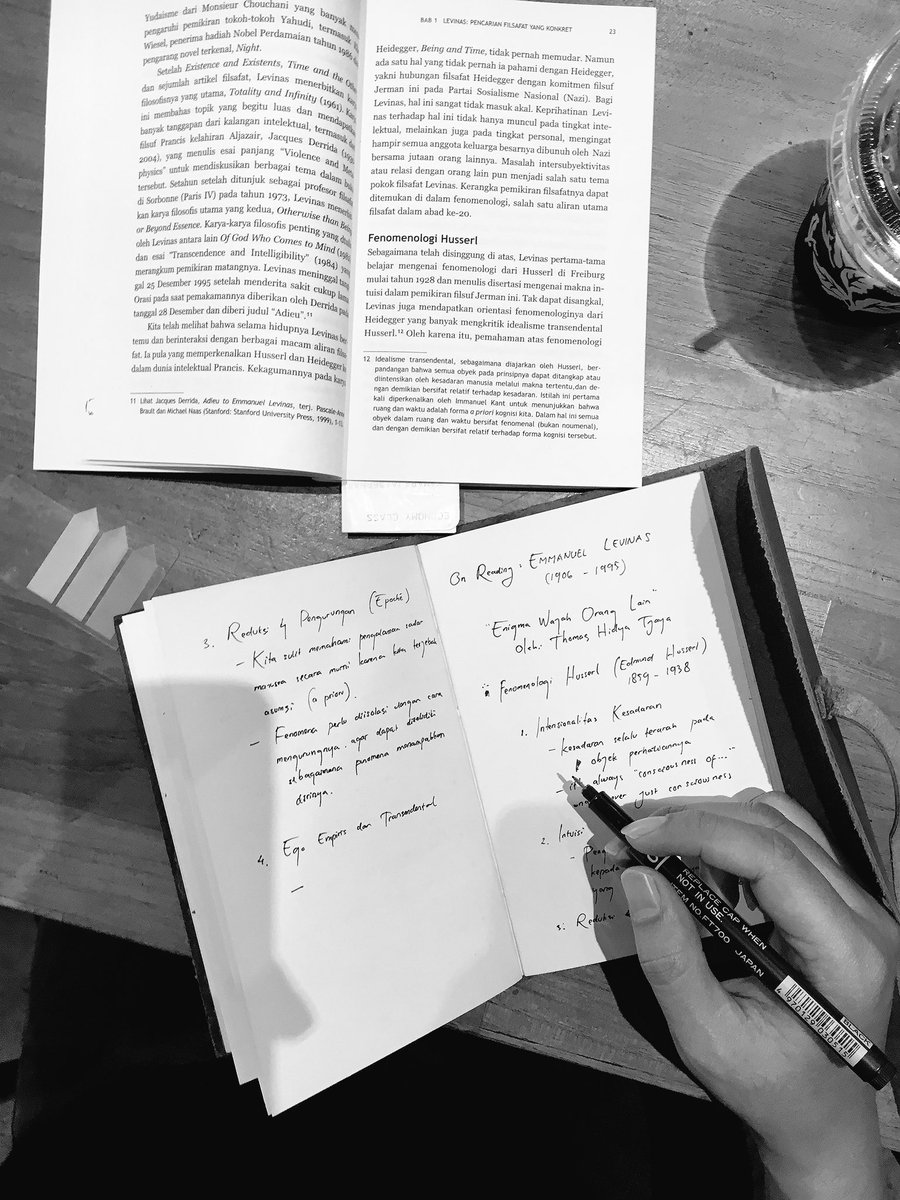 Yudaisme dari Monsieur Chouchani yang banyak
pengaruhi pemikiran tokoh-tokoh Yahudi, termasuk
Wiesel, penerima hadiah Nobel Perdamaian tahun 1986
pengarang novel terkenal, Night.
Setelah Existence and Existents, Time and the
dan sejumlah artikel filsafat, Levinas menerbitkan
filosofisnya yang utama, Totality and Infinity (1961).
ini membahas topik yang begitu luas dan
banyak tanggapan dari kalangan intelektual, termasuk
filsuf Prancis kelahiran Aljazair, Jacques Derrida
2004), yang menulis esai panjang "Violence and
physics" untuk mendiskusikan berbagai tema dalam
tersebut. Setahun setelah ditunjuk sebagai profesor
di Sorbonne (Paris IV) pada tahun 1973, Levinas
kan karya filosofis utama yang kedua, Otherwise than
or Beyond Essence. Karya-karya filosofis penting yang
oleh Levinas antara lain Of God Who Comes to Mind
dan esai "Transcendence and Intelligibility" (1984)
merangkum pemikiran matangnya. Levinas meninggal
gal 25 Desember 1995 setelah menderita sakit cukup
Orasi pada saat pemakamannya diberikan oleh Derrida
tanggal 28 Desember dan diberi judul "Adieu".11
Kita telah melihat bahwa selama hidupnya Levinas
temu dan berinteraksi dengan berbagai macam aliran
fat. Ia pula yang memperkenalkan Husserl dan Heidegger
dalam dunia intelektual Prancis. Kekagumannya pada
11 Lihat Jacques Derrida, Adieu to Emmanuel Levinas, terj. Pascale-Anne
Brault dan Michael Naas (Stanford: Stanford University Press, 1999),
BAB 1 LEVINAS: PENCARIAN FILSAFAT YANG KONKRET 23
Heidegger, Being and Time, tidak pernah memudar. Namun
ada satu hal yang tidak pernah ia pahami dengan Heidegger,
yakni hubungan filsafat Heidegger dengan komitmen filsuf
Jerman ini pada Partai Sosialisme Nasional (Nazi). Bagi
Levinas, hal ini sangat tidak masuk akal. Keprihatinan Levi-
nas terhadap hal ini tidak hanya muncul pada tingkat inte-
lektual, melainkan juga pada tingkat personal, mengingat
hampir semua anggota keluarga besarnya dibunuh oleh Nazi
bersama jutaan orang lainnya. Masalah intersubyektivitas
atau relasi dengan orang lain pun menjadi salah satu tema
pokok filsafat Levinas. Kerangka pemikiran filsafatnya dapat
ditemukan di dalam fenomenologi, salah satu aliran utama
filsafat dalam abad ke-20.
Fenomenologi Husserl
Sebagaimana telah disinggung di atas, Levinas pertama-tama
belajar mengenai fenomenologi dari Husserl di Freiburg
mulai tahun 1928 dan menulis disertasi mengenai makna in-
tuisi dalam pemikiran filsuf Jerman ini. Tak dapat disangkal,
Levinas juga mendapatkan orientasi fenomenologinya dari
Heidegger yang banyak mengkritik idealisme transendental
Husserl.12 Oleh karena itu, pemahaman atas fenomenologi
12 Idealisme transendental, sebagaimana diajarkan oleh Husserl, ber-
pandangan bahwa semua obyek pada prinsipnya dapat ditangkap atau
diintensikan oleh kesadaran manusia melalui makna tertentu,dan de-
ngan demikian bersifat relatif terhadap kesadaran. Istilah ini pertama
kali diperkenalkan oleh Immanuel Kant untuk menunjukkan bahwa
ruang dan waktu adalah forma a priori kognisi kita. Dalam hal ini semua
obyek dalam ruang dan waktu bersifat fenomenal (bukan noumenal),
dan dengan demikian bersifat relatif terhadap forma kognisi tersebut.
ECONOMY CLASS
3. Reduksi & Pengurungan (Epoché)
- Kita sulit memahami pengalaman sadar
manusia secara murni karena kita terjebak
asumsi (a priori).
- Fenomena perlu diisolasi dengan cara
mengurungnya. agar dapat diteliti
sebagaimana fenomena menampakkan
dirinya.
4. Ego Empiris dan Transendental
-
On Reading: EMMANUEL LEVINAS
(1906 - 1995)
"Enigma Wajah Orang Lain"
Oleh: Thomas Hidya Tjaya
Fenomenologi Husserl (Edmund Husserl)
1859 - 1938
1. Intensionalitas Kesadaran
- kesadaran selalu terarah pada
objek perhatiannya
- always "consciousness of..."
never just consciousness
2. Intuisi
kepada
yang
3. Reduksi
REPLACE CAP WHEN
NOT IN USE.
ITEM NO.FT700 JAPAN
BLACK
4 970129 030515